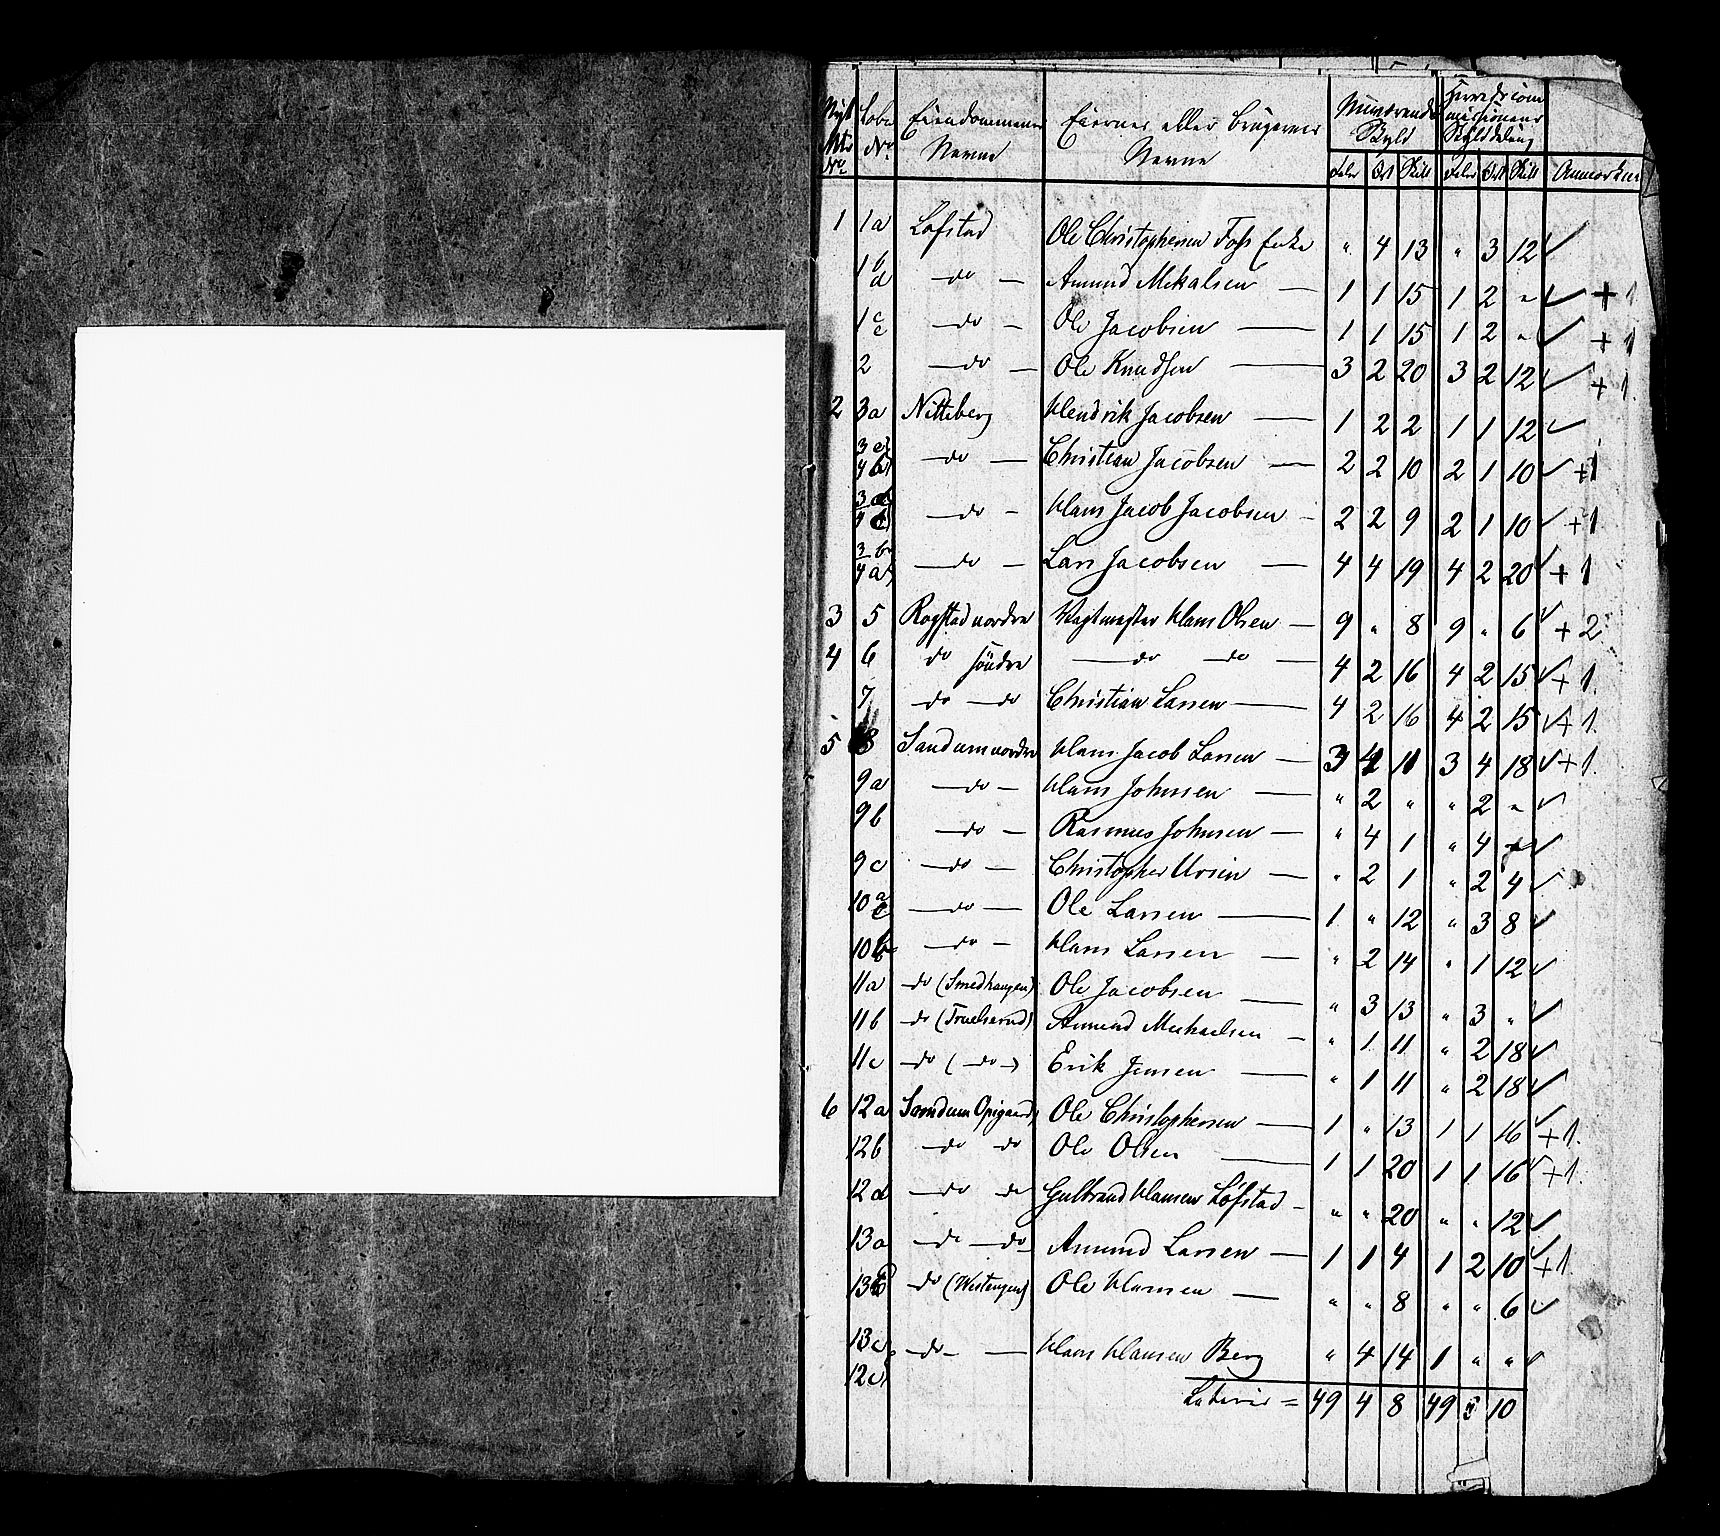 Nyt Mtr No | Løbe No | Eiendommenes Navne | Eiernes eller Brugernes Navne | Nuværende Skyld | Herredscommissionens Skylddeling
Daler | Ort | Skill | Daler | Ort | Skill | Anmærkn
1 | 1a | Løfstad | Ole Christophersen Foss Enke | " | 4 | 13 | " | 3 | 12 ✓
1 b d | — do — | Amund Mikalsen — | 1 | 1 | 15 | 1 | 2 | " ✓ + 1
1 c e | — do — | Ole Jacobsen — | 1 | 1 | 15 | 1 | 2 | " ✓ + 1
2 | — do — | Ole Knudsen — | 3 | 2 | 20 | 3 | 2 | 12 ✓ + 1
2 | 3a | Nitteberg | Hendrik Jacobsen — | 1 | 2 | 2 | 1 | 1 | 12 ✓
4b | — do — | Christian Jacobsen — | 2 | 2 | 10 | 2 | 1 | 10 ✓ + 1
— do — | Hans Jacob Jacobsen — | 2 | 2 | 9 | 2 | 1 | 10 ✓ + 1
3b 4a | — do — | Lars Jacobsen — | 4 | 4 | 19 | 4 | 2 | 20 ✓ + 1
3 | 5 | Rogstad nordre | Vagtmester Hans Olsen — | 9 | " | 8 | 9 | " | 6 ✓ + 2
4 | 6 | do søndre | — do — do — | 4 | 2 | 16 | 4 | 2 | 15 ✓ + 1
7 | — do — do | Christian Larsen — | 4 | 2 | 16 | 4 | 2 | 15 ✓ + 1
5 | 8 | Sandum nordre | Hans Jacob Larsen — | 3 | 4 | 11 | 3 | 4 | 18 ✓ + 1
9a | — do — | Hans Johnsen — | " | 2 | " | " | 2 | " ✓
9b | — do — | Rasmus Johnsen — | " | 4 | 1 | " | 4 | ✓
9c | — do — | Christopher Ursin — | " | 2 | 1 | " | 2 | 4 ✓
10 a c | — do — | Ole Larsen — | 1 | " | 12 | " | 3 | 8 ✓
10b | — do — | Hans Larsen — | " | 2 | 14 | " | 1 | 12 ✓
11a | — do (Smedhaugen) | Ole Jacobsen — | " | 3 | 13 | " | 3 | " ✓
11b | — do (Truelserud) | Amund Michaelsen — | " | 1 | 11 | " | 2 | 18 ✓
11c | — do ( — do — ) | Erik Jensen — | " | 1 | 11 | " | 2 | 18 ✓
6 | 12a | Sandum Opigaard | Ole Christophersen — | 1 | " | 13 | 1 | 1 | 16 ✓ + 1
12b | — do do | Ole Olsen — | 1 | 1 | 20 | 1 | 1 | 16 ✓ + 1
12d | — do do | Gulbrand Hansen Løfstad — | " | " | 20 | " | " | 12 ✓
13a | — do — do | Amund Larsen — | 1 | 1 | 4 | 1 | 2 | 10 ✓ + 1
13b | — do (Westengen) | Ole Hansen — | " | " | 8 | " | " | 6 ✓
13c 12c | — do — — | Hans Hansen Berg | " | 4 | 14 | 1 | " | " ✓
Lateris = | 49 | 4 | 8 | 49 | 3 | 10